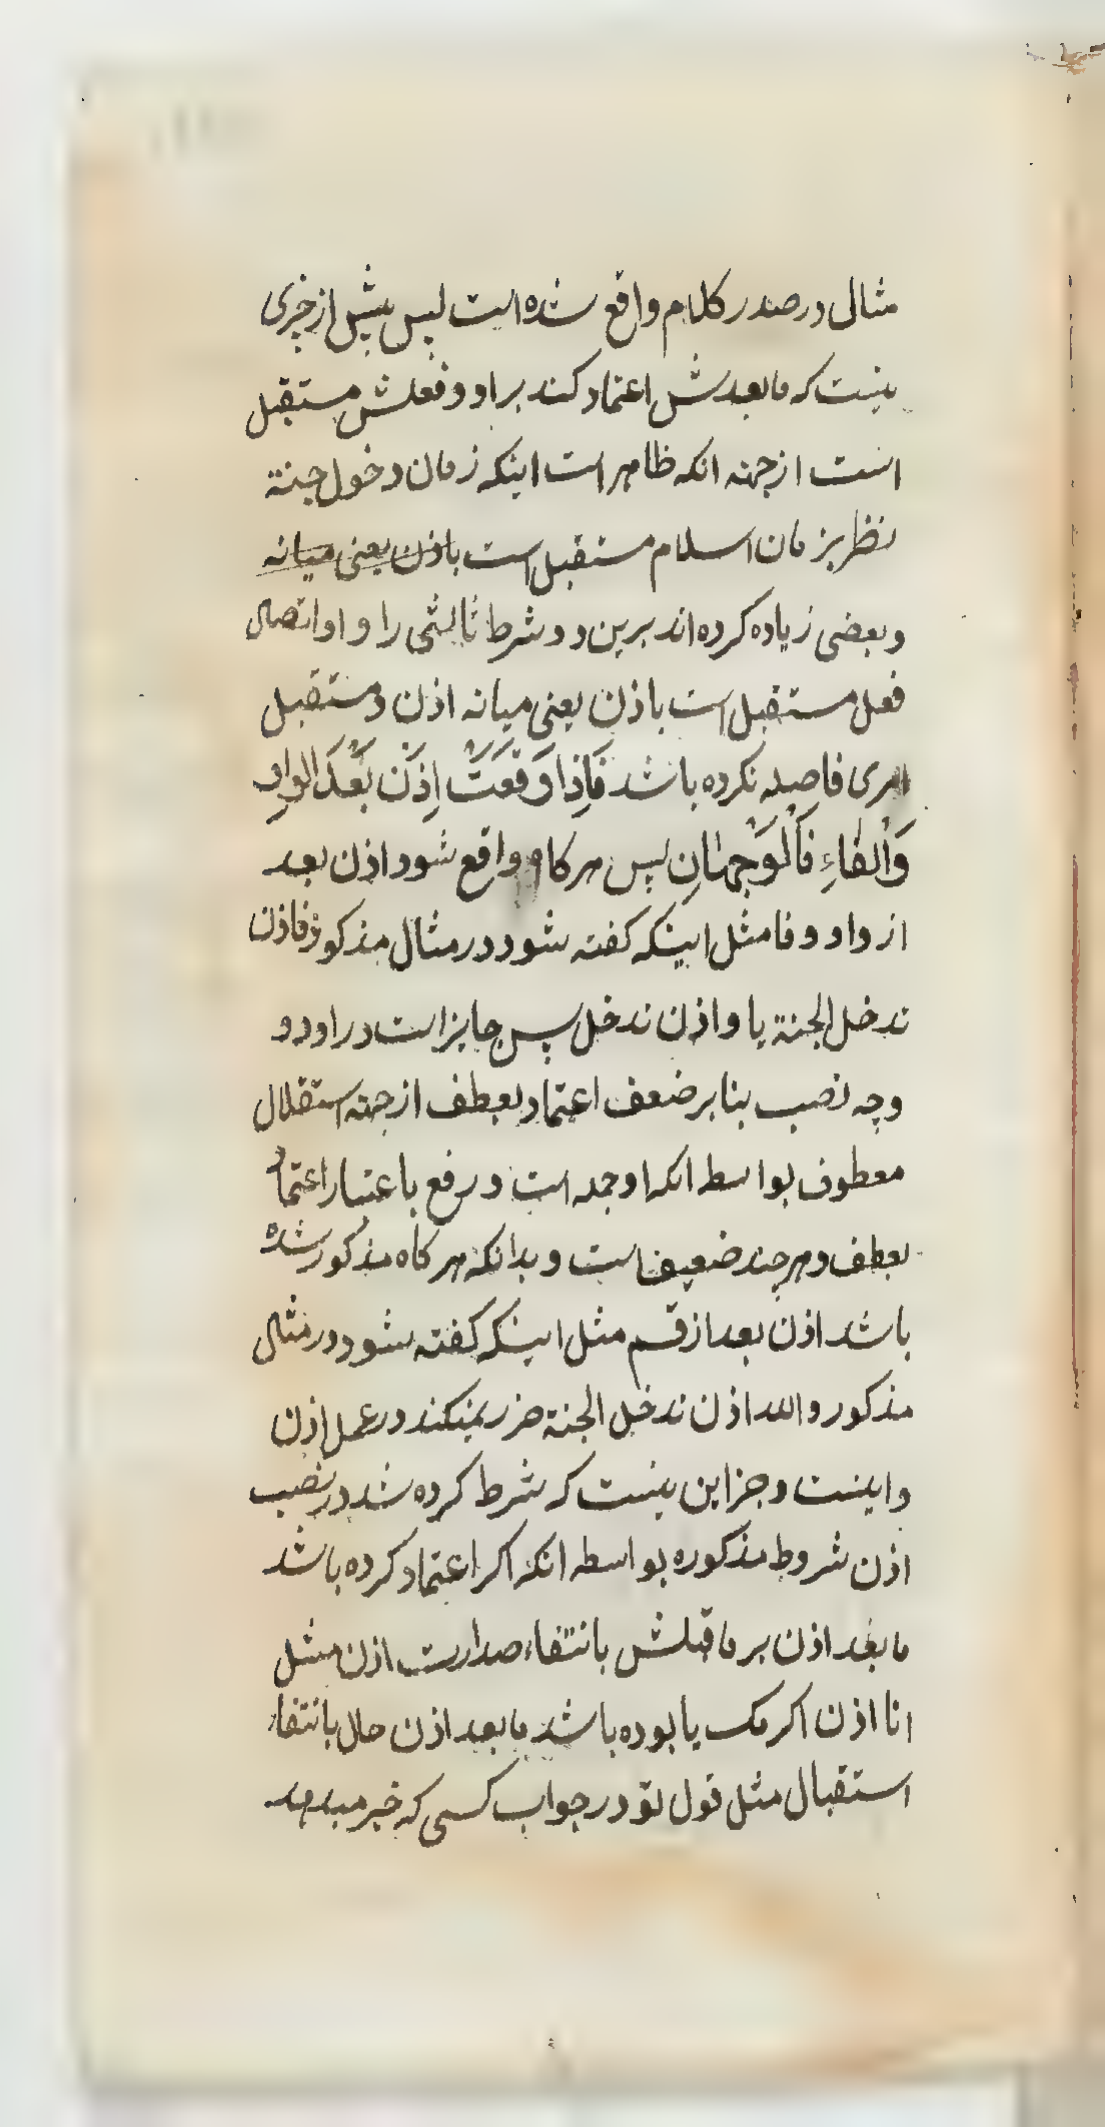 مثال در صدر کلام واقع شده است پس پیش از چیزی
نیست که مابعدش اعتماد کند بر او و فعلش مستقبل
است از جهته انکه ظاهر است اینکه زمان دخول جنة
نظر بزمان اسلام مستقبل است باذن یعنی میانه
و بعضی زیاده کرده اند برین دو شرط ثالثی را و او اتصال
فعل مستقبل است باذن یعنی میانه اذن و مستقبل
امری فاصله نکرده باشد فَاِذَا وَقَعَتْ اِذَنْ بَعْدَ الواوِ
وَالْفَاءِ فَالْوَجْهَانِ پس هرکاه واقع شود اذن بعد
از واو و فا مثل اینکه کفته شود در مثال مذکور فاذن
ندخل الجنة یا و اذن ندخل پس جایز است در او دو
وجه نصب بنا بر ضعف اعتماد بعطف از جهته استقلال
معطوف بواسطه انکه او جمله است و رفع باعتبار اعتماد
بعطف و هرچند ضعیف است و بدانکه هرکاه مذکور شده
باشد اذن بعد از قسم مثل اینکه کفته شود در مثال
مذکور والله اذن ندخل الجنة ضرر نمیکند در عمل اذن
و اینست و جز این نیست که شرط کرده شد در نصب
اذن شروط مذکوره بواسطه انکه اکر اعتماد کرده باشد
مابعد اذن بر ماقبلش بانتفاء صدارت اذن مثل
انا اذن اکرمک یا بوده باشد مابعد اذن حال بانتفاء
استقبال مثل قول تو در جواب کسی که خبر میدهد